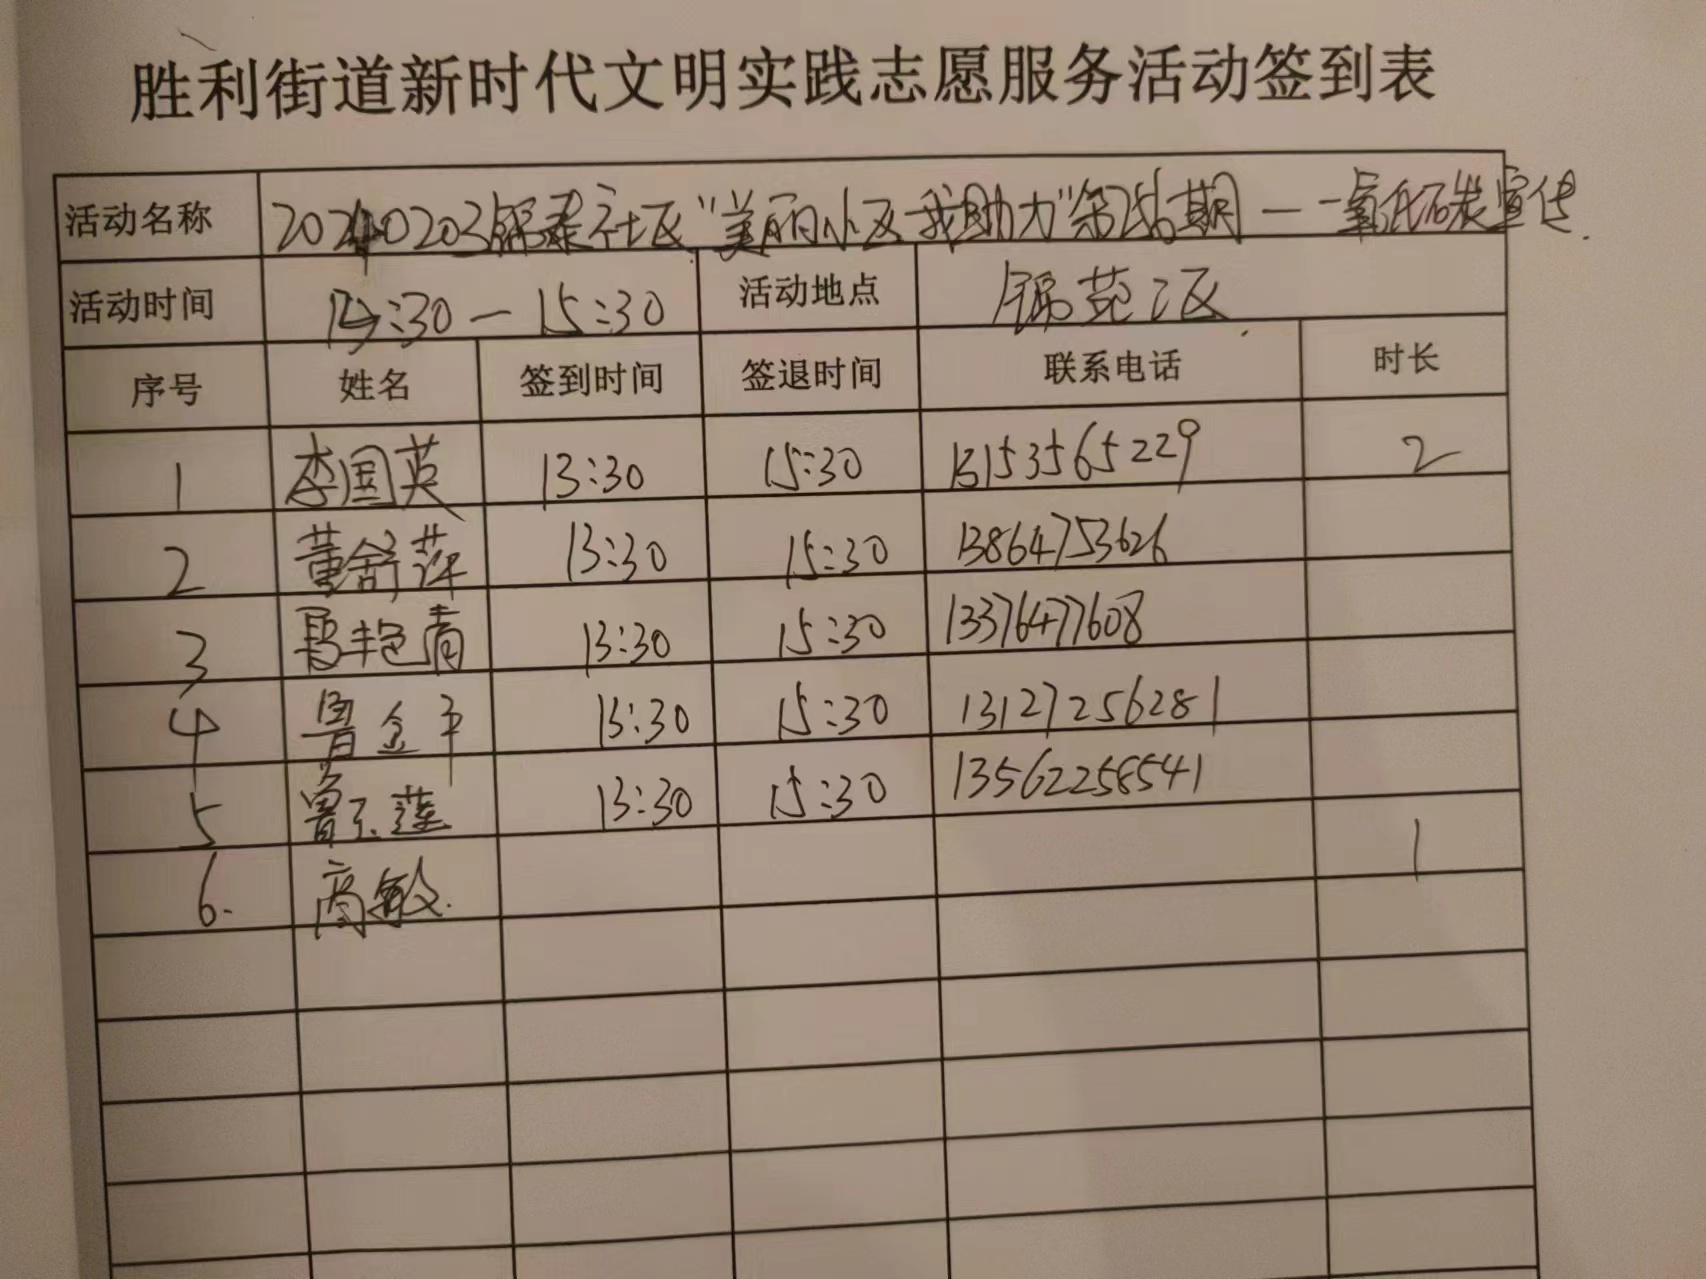 胜利街道新时代文明实践志愿服务活动签到表
活动名称 20240203锦泰社区"美丽小区我助力"第 期 — 一氧化碳宣传
活动时间 13:30 — 15:30 活动地点 锦苑二区
序号 姓名 签到时间 签退时间 联系电话 时长
1 李国英 13:30 15:30 13153565229 2
2 董舒萍 13:30 15:30 13864753626
3 马艳青 13:30 15:30 13376477608
4 鲁金平 13:30 15:30 13127256281
5 鲁东莲 13:30 15:30 13562258541
6. 高敏. 1